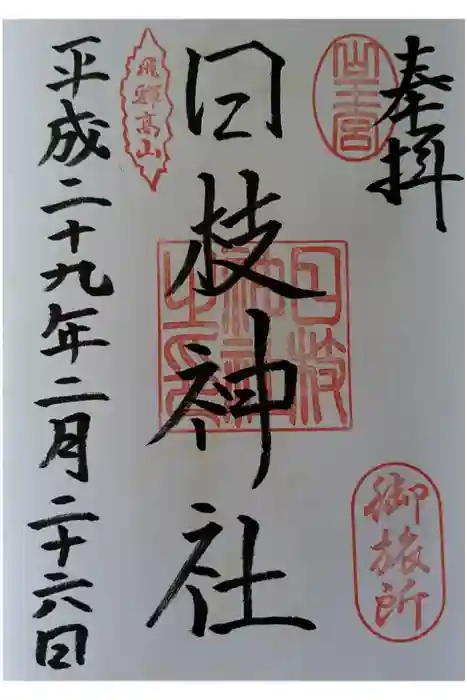 奉拝
山王宮
日枝神社
日枝
神社
之印
御旅所
飛騨高山
平成二十九年二月二十六日